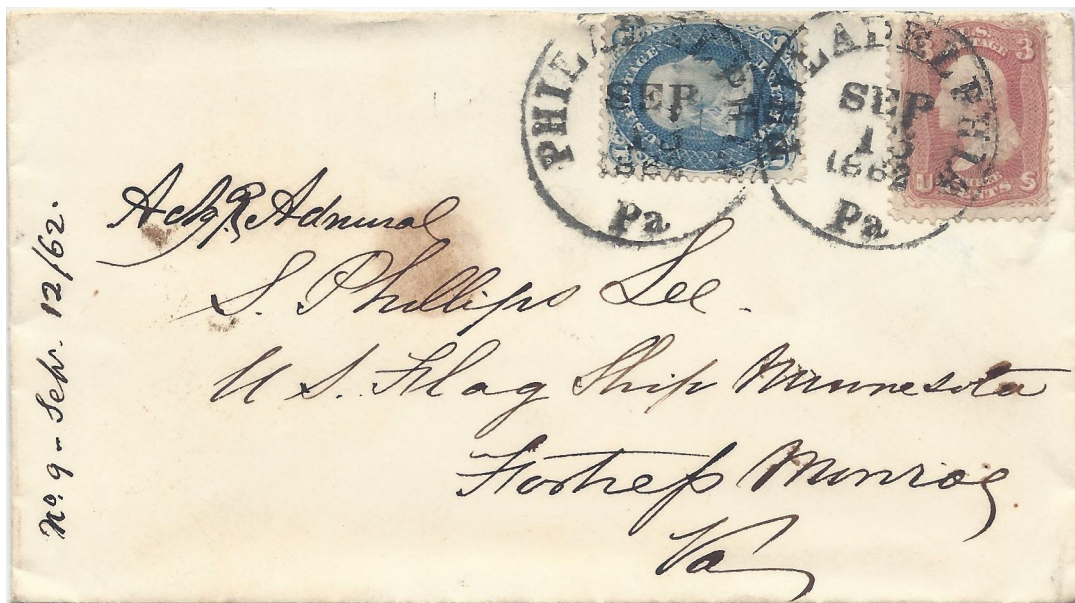 PHILADELPHIA
SEP
1862
Pa
PHILADELPHIA
SEP
13
1862
Pa
U.S. POSTAGE
3 3
U S
CENTS
Actg. R. Admiral
S. Phillips Lee.
U S. Flag Ship Minnesota
Fortress Monroe
Va
No. 9 - Sepr. 12/62.